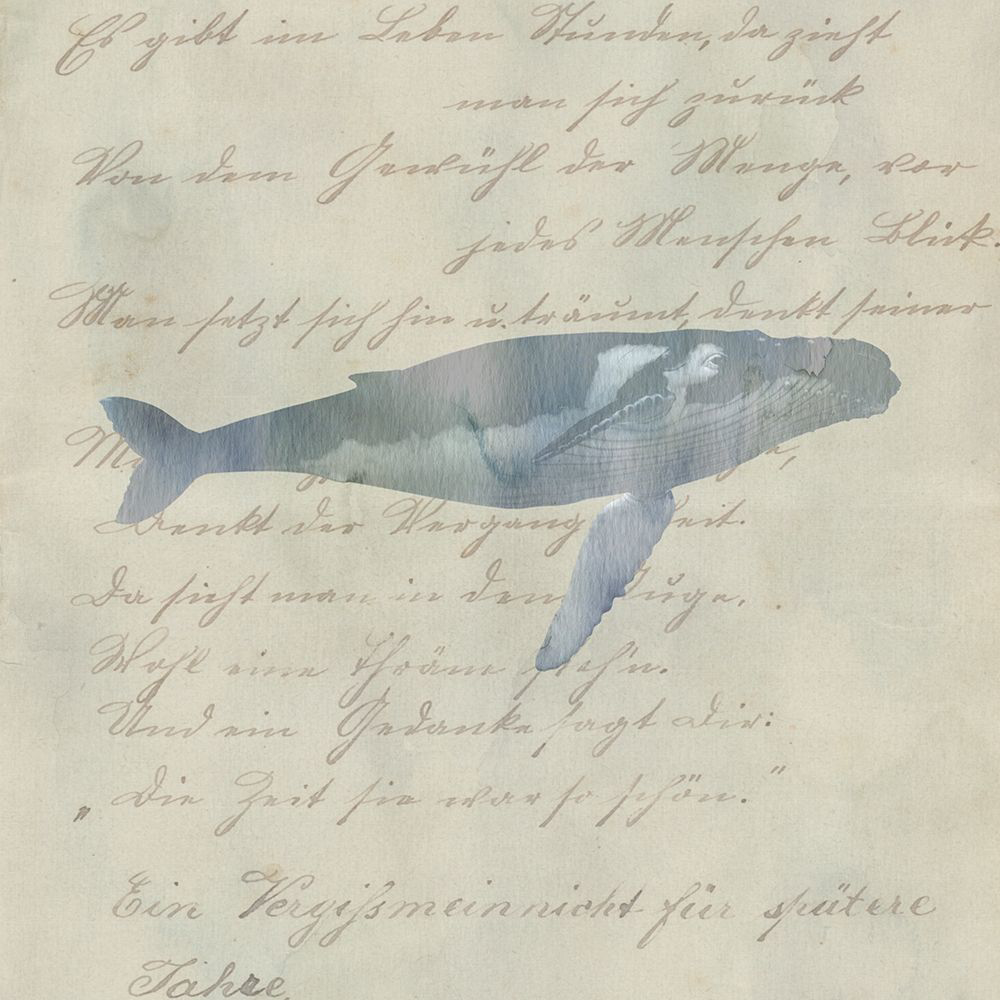 Es gibt im Leben Stunden, da zieht
man sich zurück
Von dem Gewühl der Menge, vor
jedes Menschen Blick.
Man setzt sich hin u. träumt, denkt seiner
Denkt der Vergang eit.
Da sieht man in dem Auge,
Wohl eine Thräne steh'n.
Und ein Gedanke sagt Dir:
„Die Zeit sie war so schön."
Ein Vergißmeinnicht für spätere
Jahre.